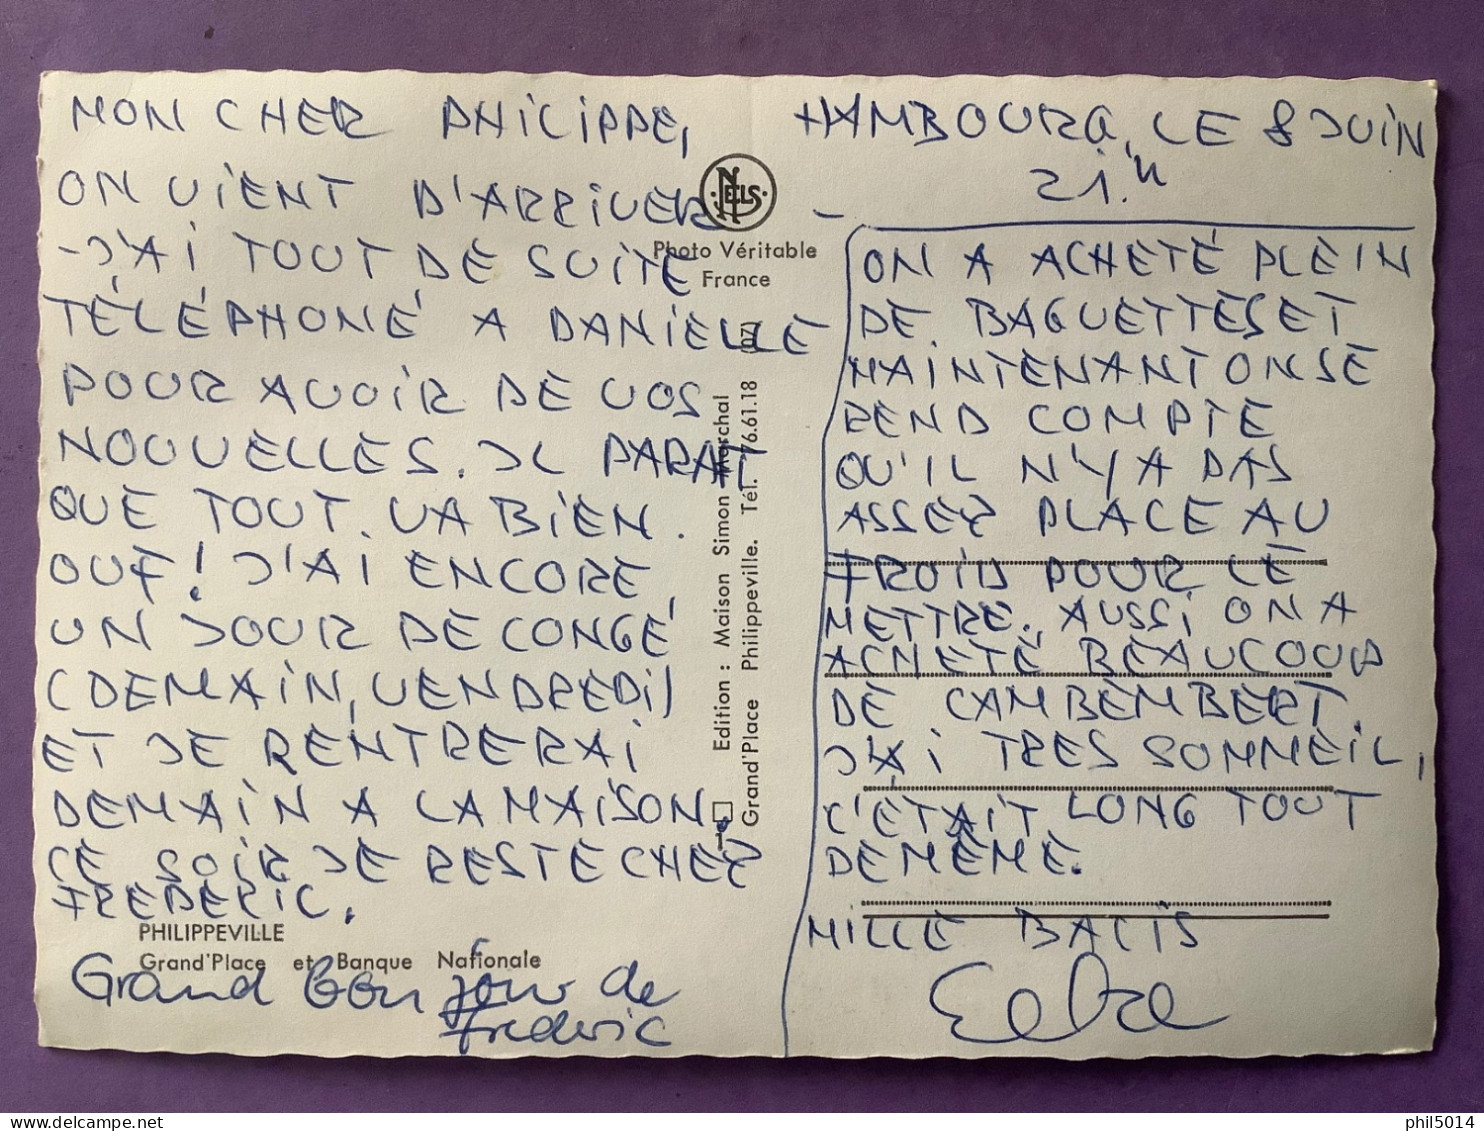 MON CHER PHILIPPE,
ON VIENT D'ARRIVER
- J'AI TOUT DE SUITE
TÉLÉPHONÉ A DANIELLE
POUR AVOIR DE VOS
NOUVELLES. IL PARAIT
QUE TOUT VA BIEN.
OUF! J'AI ENCORE
UN JOUR DE CONGÉ
(DEMAIN, VENDREDI)
ET JE RENTRERAI
DEMAIN A LA MAISON,
CE SOIR JE RESTE CHEZ
FREDERIC.
PHILIPPEVILLE
Grand'Place et Banque Nationale
Grand Bonjour de
Frederic
NELS
Photo Véritable
France
Edition : Maison Simon Marchal
Grand'Place Philippeville. Tél. 76.61.18 (07)
HAMBOURG, LE 8 JUIN
21.h
ON A ACHETÉ PLEIN
DE BAGUETTES ET
MAINTENANT ON SE
REND COMPTE
QU'IL N'Y A PAS
ASSEZ PLACE AU
FROID POUR LE
METTRE. AUSSI ON A
ACHETÉ BEAUCOUP
DE CAMBEMBERT.
J'AI TRES SOMMEIL,
C'ÉTAIT LONG TOUT
DE MÊME.
MILLE BACIS
phil5014